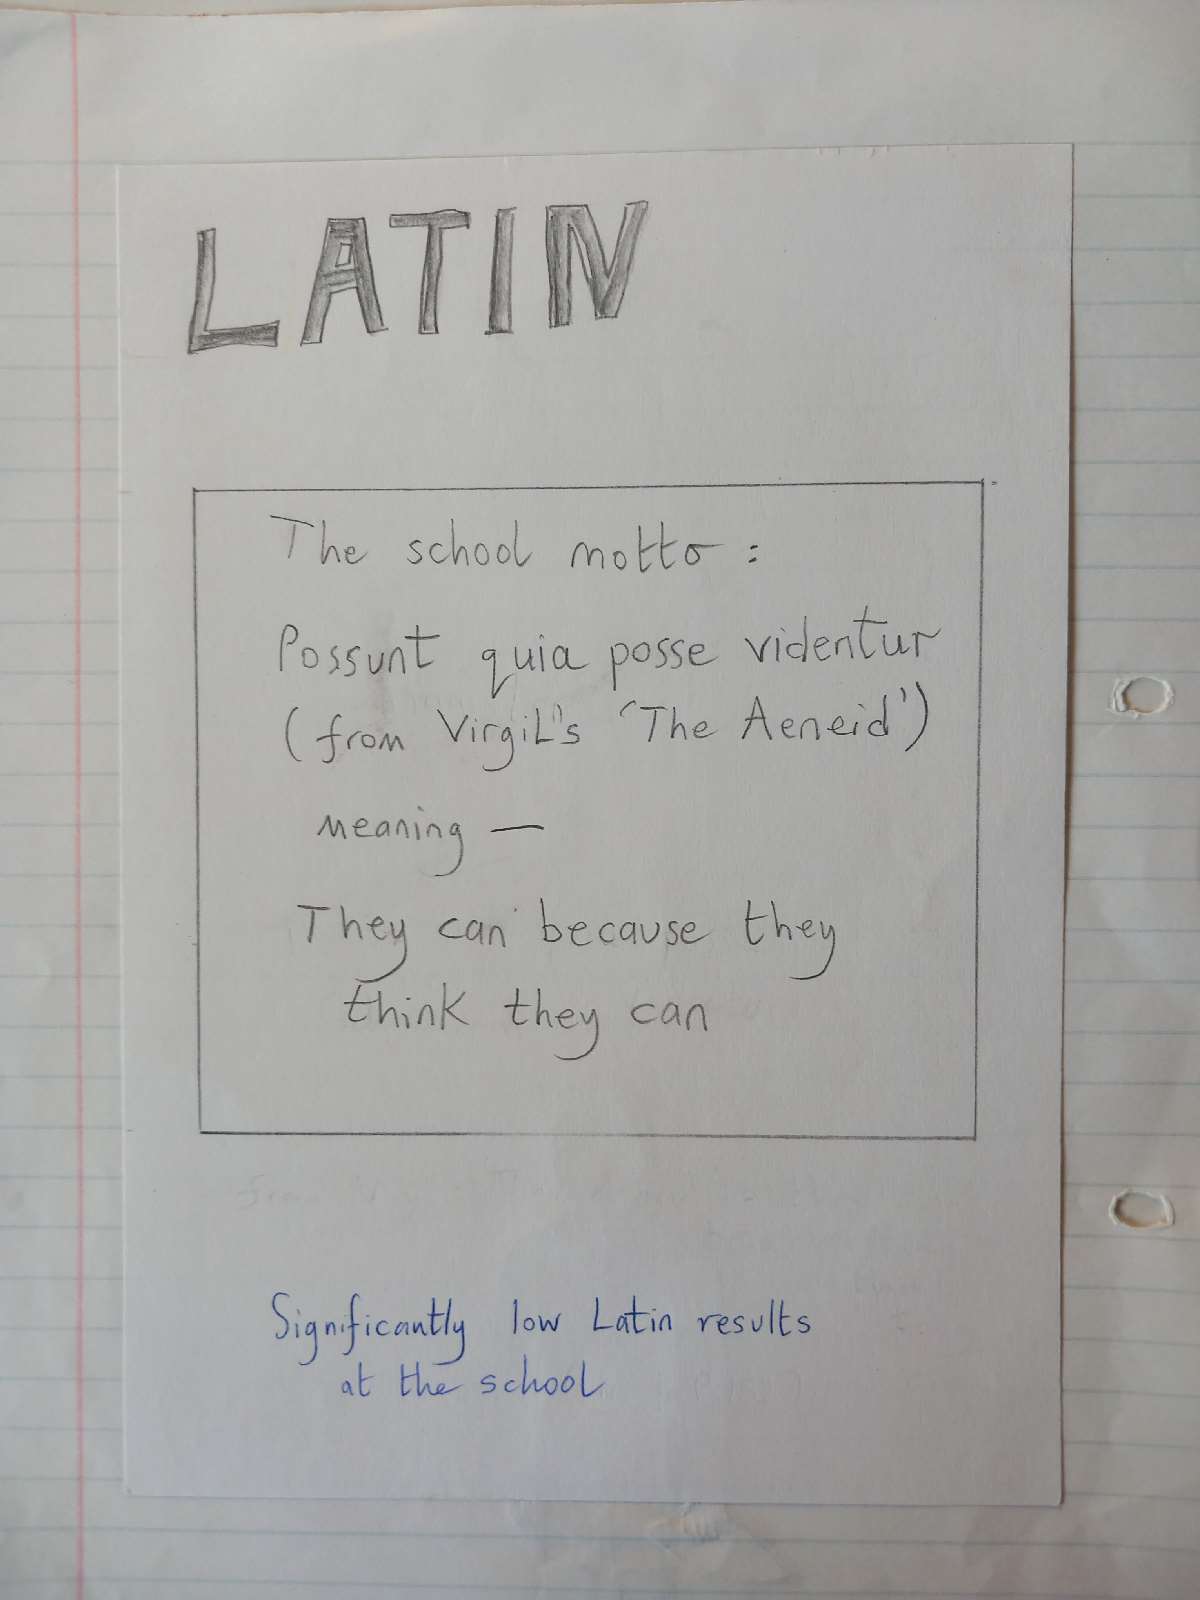 LATIN
The school motto :
Possunt quia posse videntur
(from Virgil's 'The Aeneid')
meaning —
They can because they
think they can
Significantly low Latin results
at the school